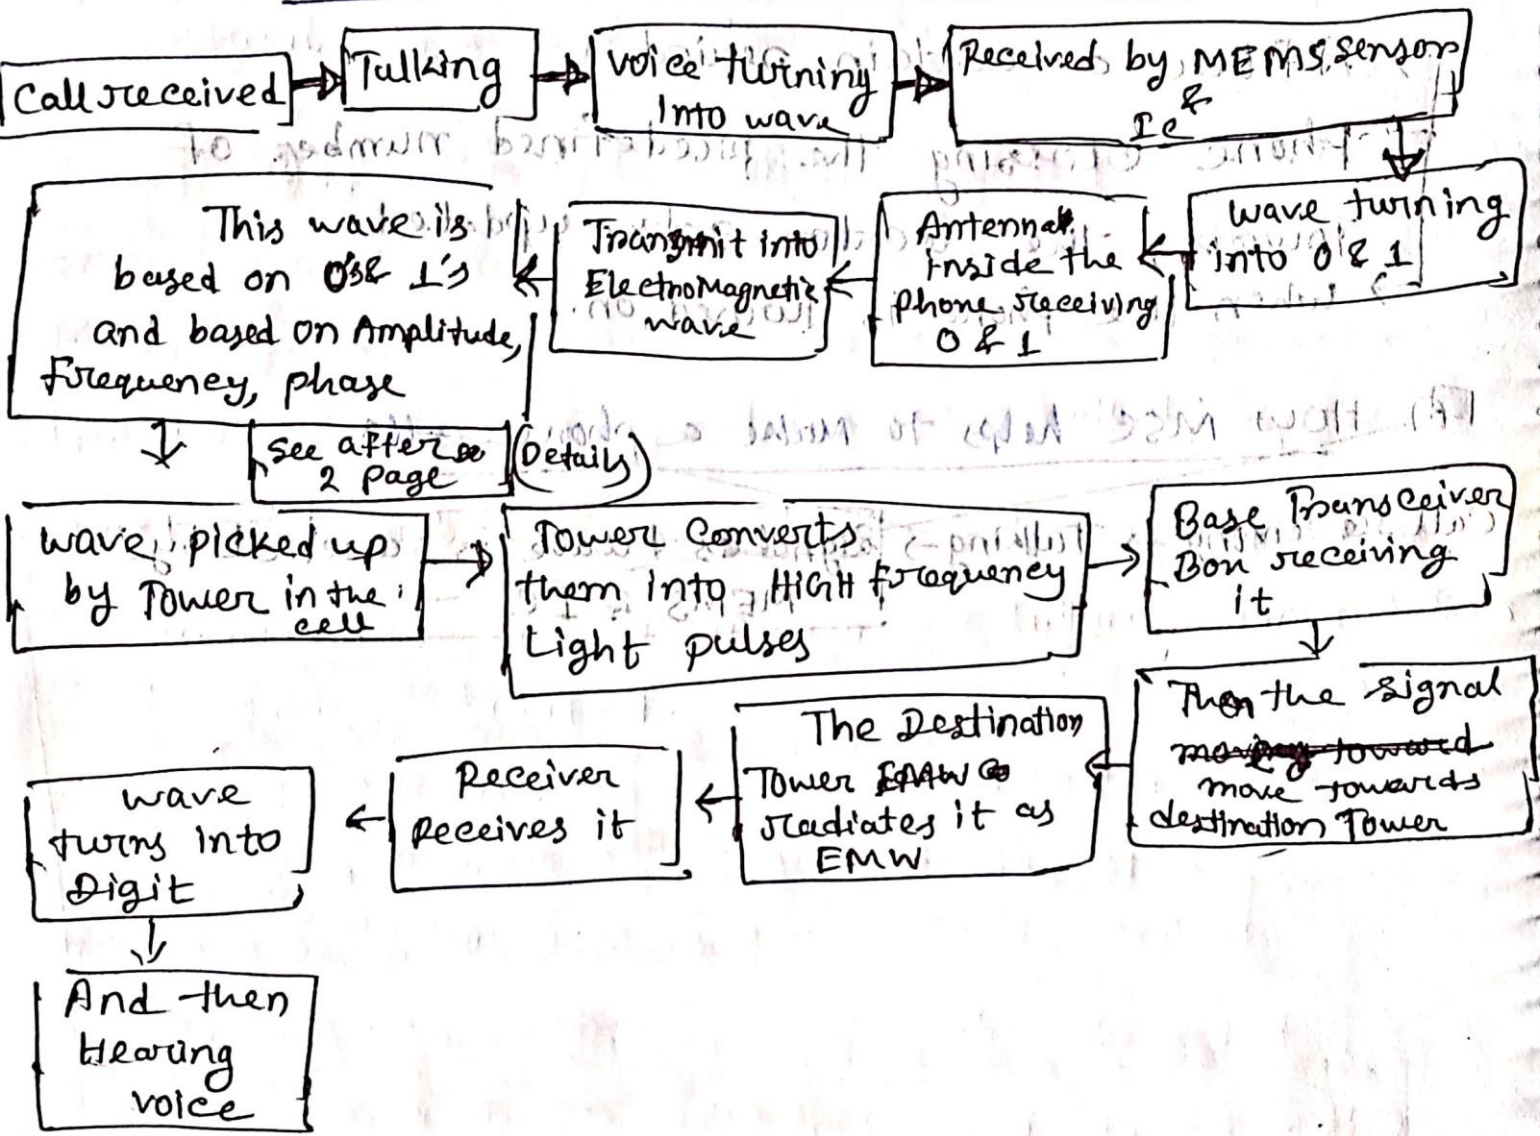 Call received
Talking
Voice turning
Into wave
Received by MEMS sensor
&
Ic
wave turning
into 0 & 1
Antenna
inside the
phone receiving
0 & 1
Transmit into
ElectroMagnetic
wave
This wave is
based on 0's & 1's
and based on Amplitude,
frequency, phase
See after
2 page
(Details)
wave picked up
by Tower in the
cell
Tower Converts
them into HIGH frequency
Light pulses
Base Transceiver
Box receiving
it
Then the signal
move towards
destination Tower
The Destination
Tower
radiates it as
EMW
Receiver
Receives it
wave
turns into
Digit
And then
Hearing
voice